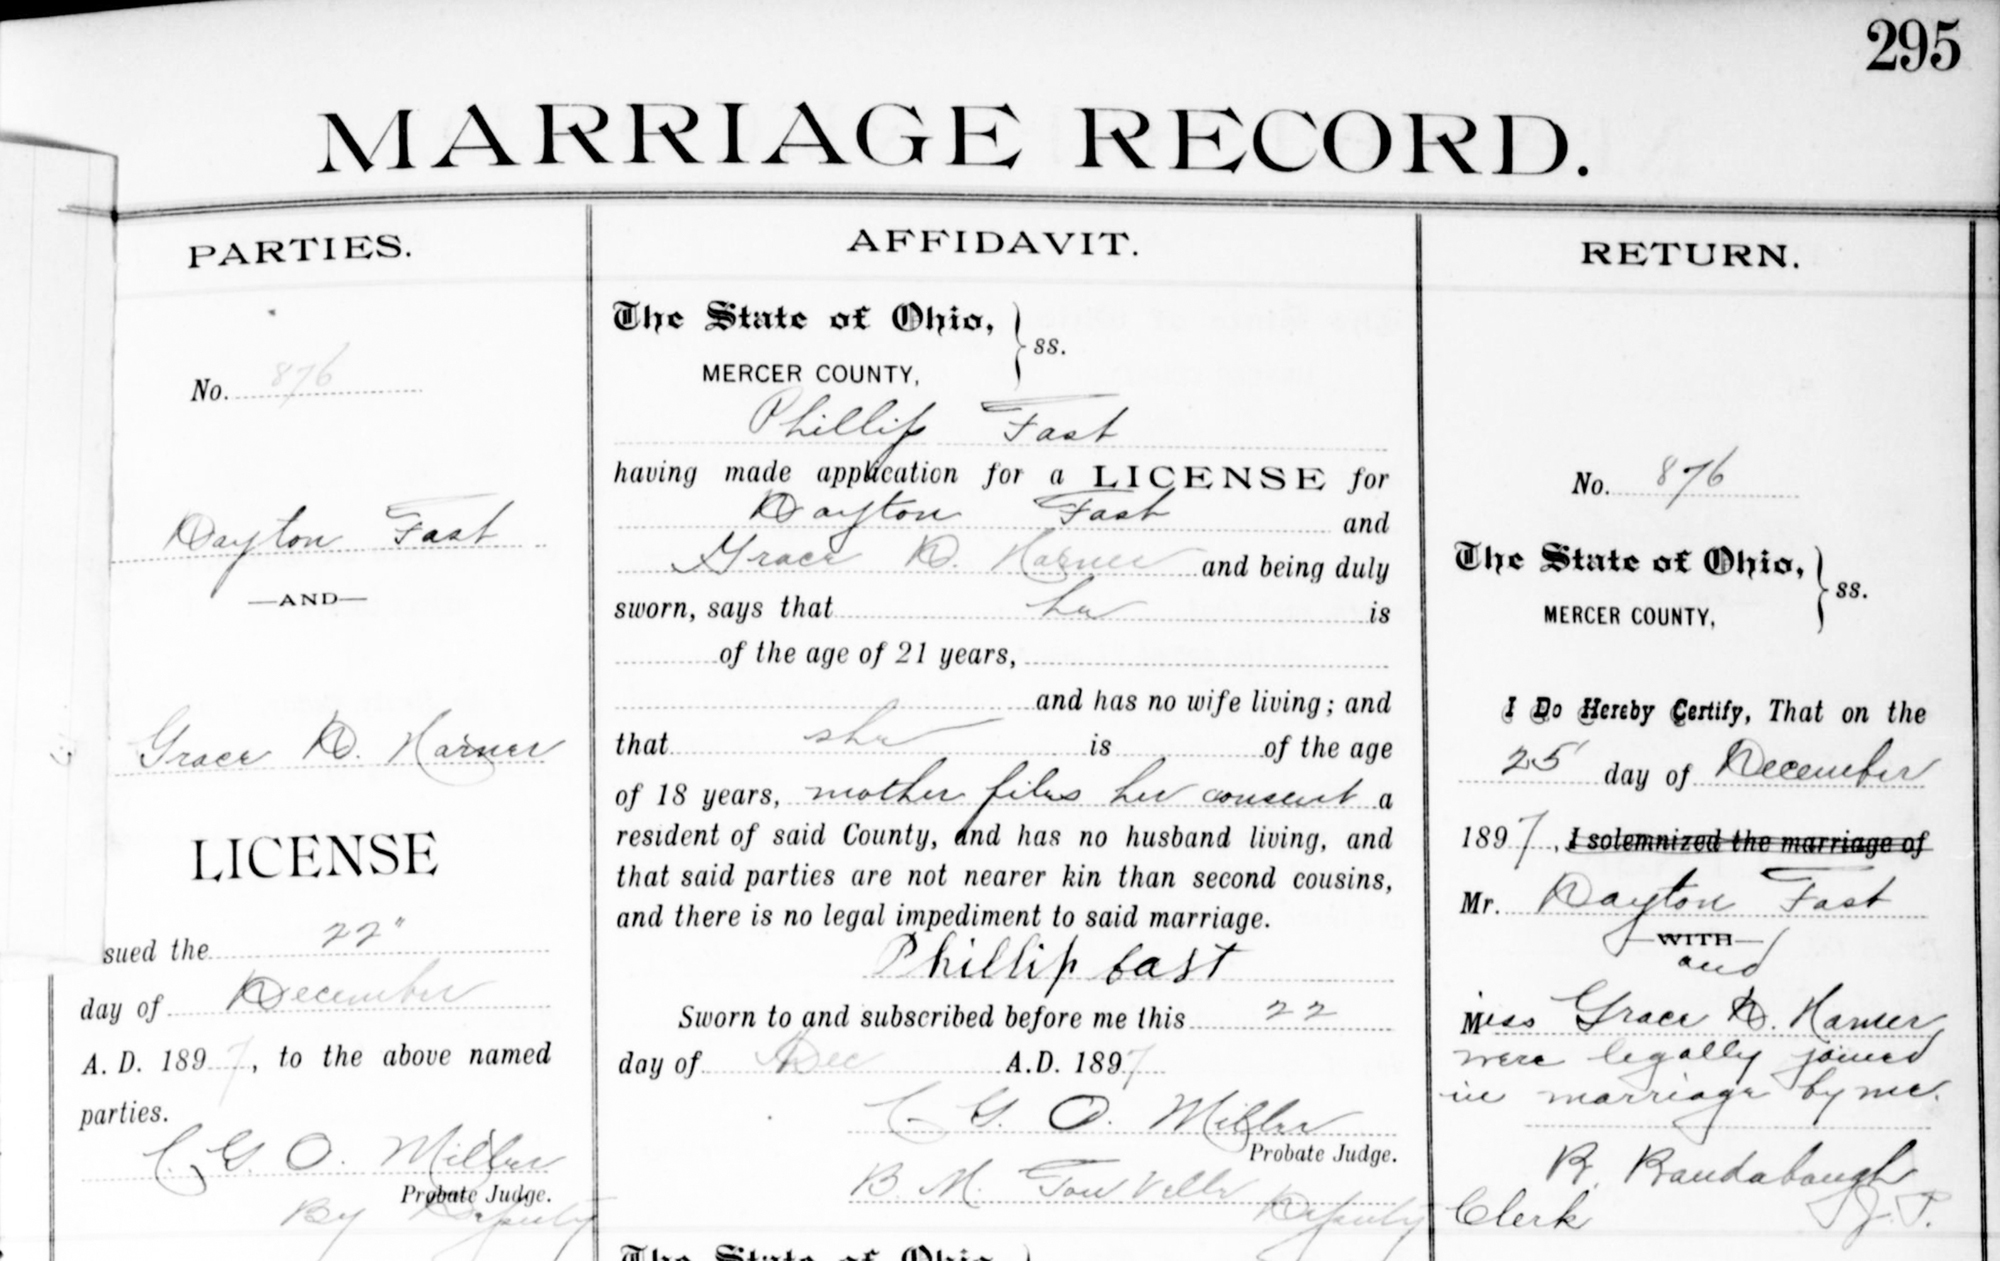 295
MARRIAGE RECORD.
PARTIES.
No. 876
Dayton Fast
—AND—
Grace D. Harner
LICENSE
sued the 22"
day of December
A. D. 1897, to the above named
parties.
C. G. O. Miller
Probate Judge.
By Deputy
AFFIDAVIT.
The State of Ohio,
MERCER COUNTY, } ss.
Phillip Fast
having made application for a LICENSE for
Dayton Fast and
Grace D. Harner and being duly
sworn, says that he is
of the age of 21 years,
and has no wife living; and
that she is of the age
of 18 years, mother files her consent a
resident of said County, and has no husband living, and
that said parties are not nearer kin than second cousins,
and there is no legal impediment to said marriage.
Phillip fast
Sworn to and subscribed before me this 22
day of Dec A.D. 1897
C. G. O. Miller
Probate Judge.
B. M. Deputy
The State of Ohio
RETURN.
No. 876
The State of Ohio,
MERCER COUNTY, } ss.
I Do Hereby Certify, That on the
25 day of December
1897, I solemnized the marriage of
Mr. Dayton Fast
—WITH—
and
Miss Grace D. Harner
were legally joined
in marriage by me.
R. Raudabaugh
Clerk J. P.